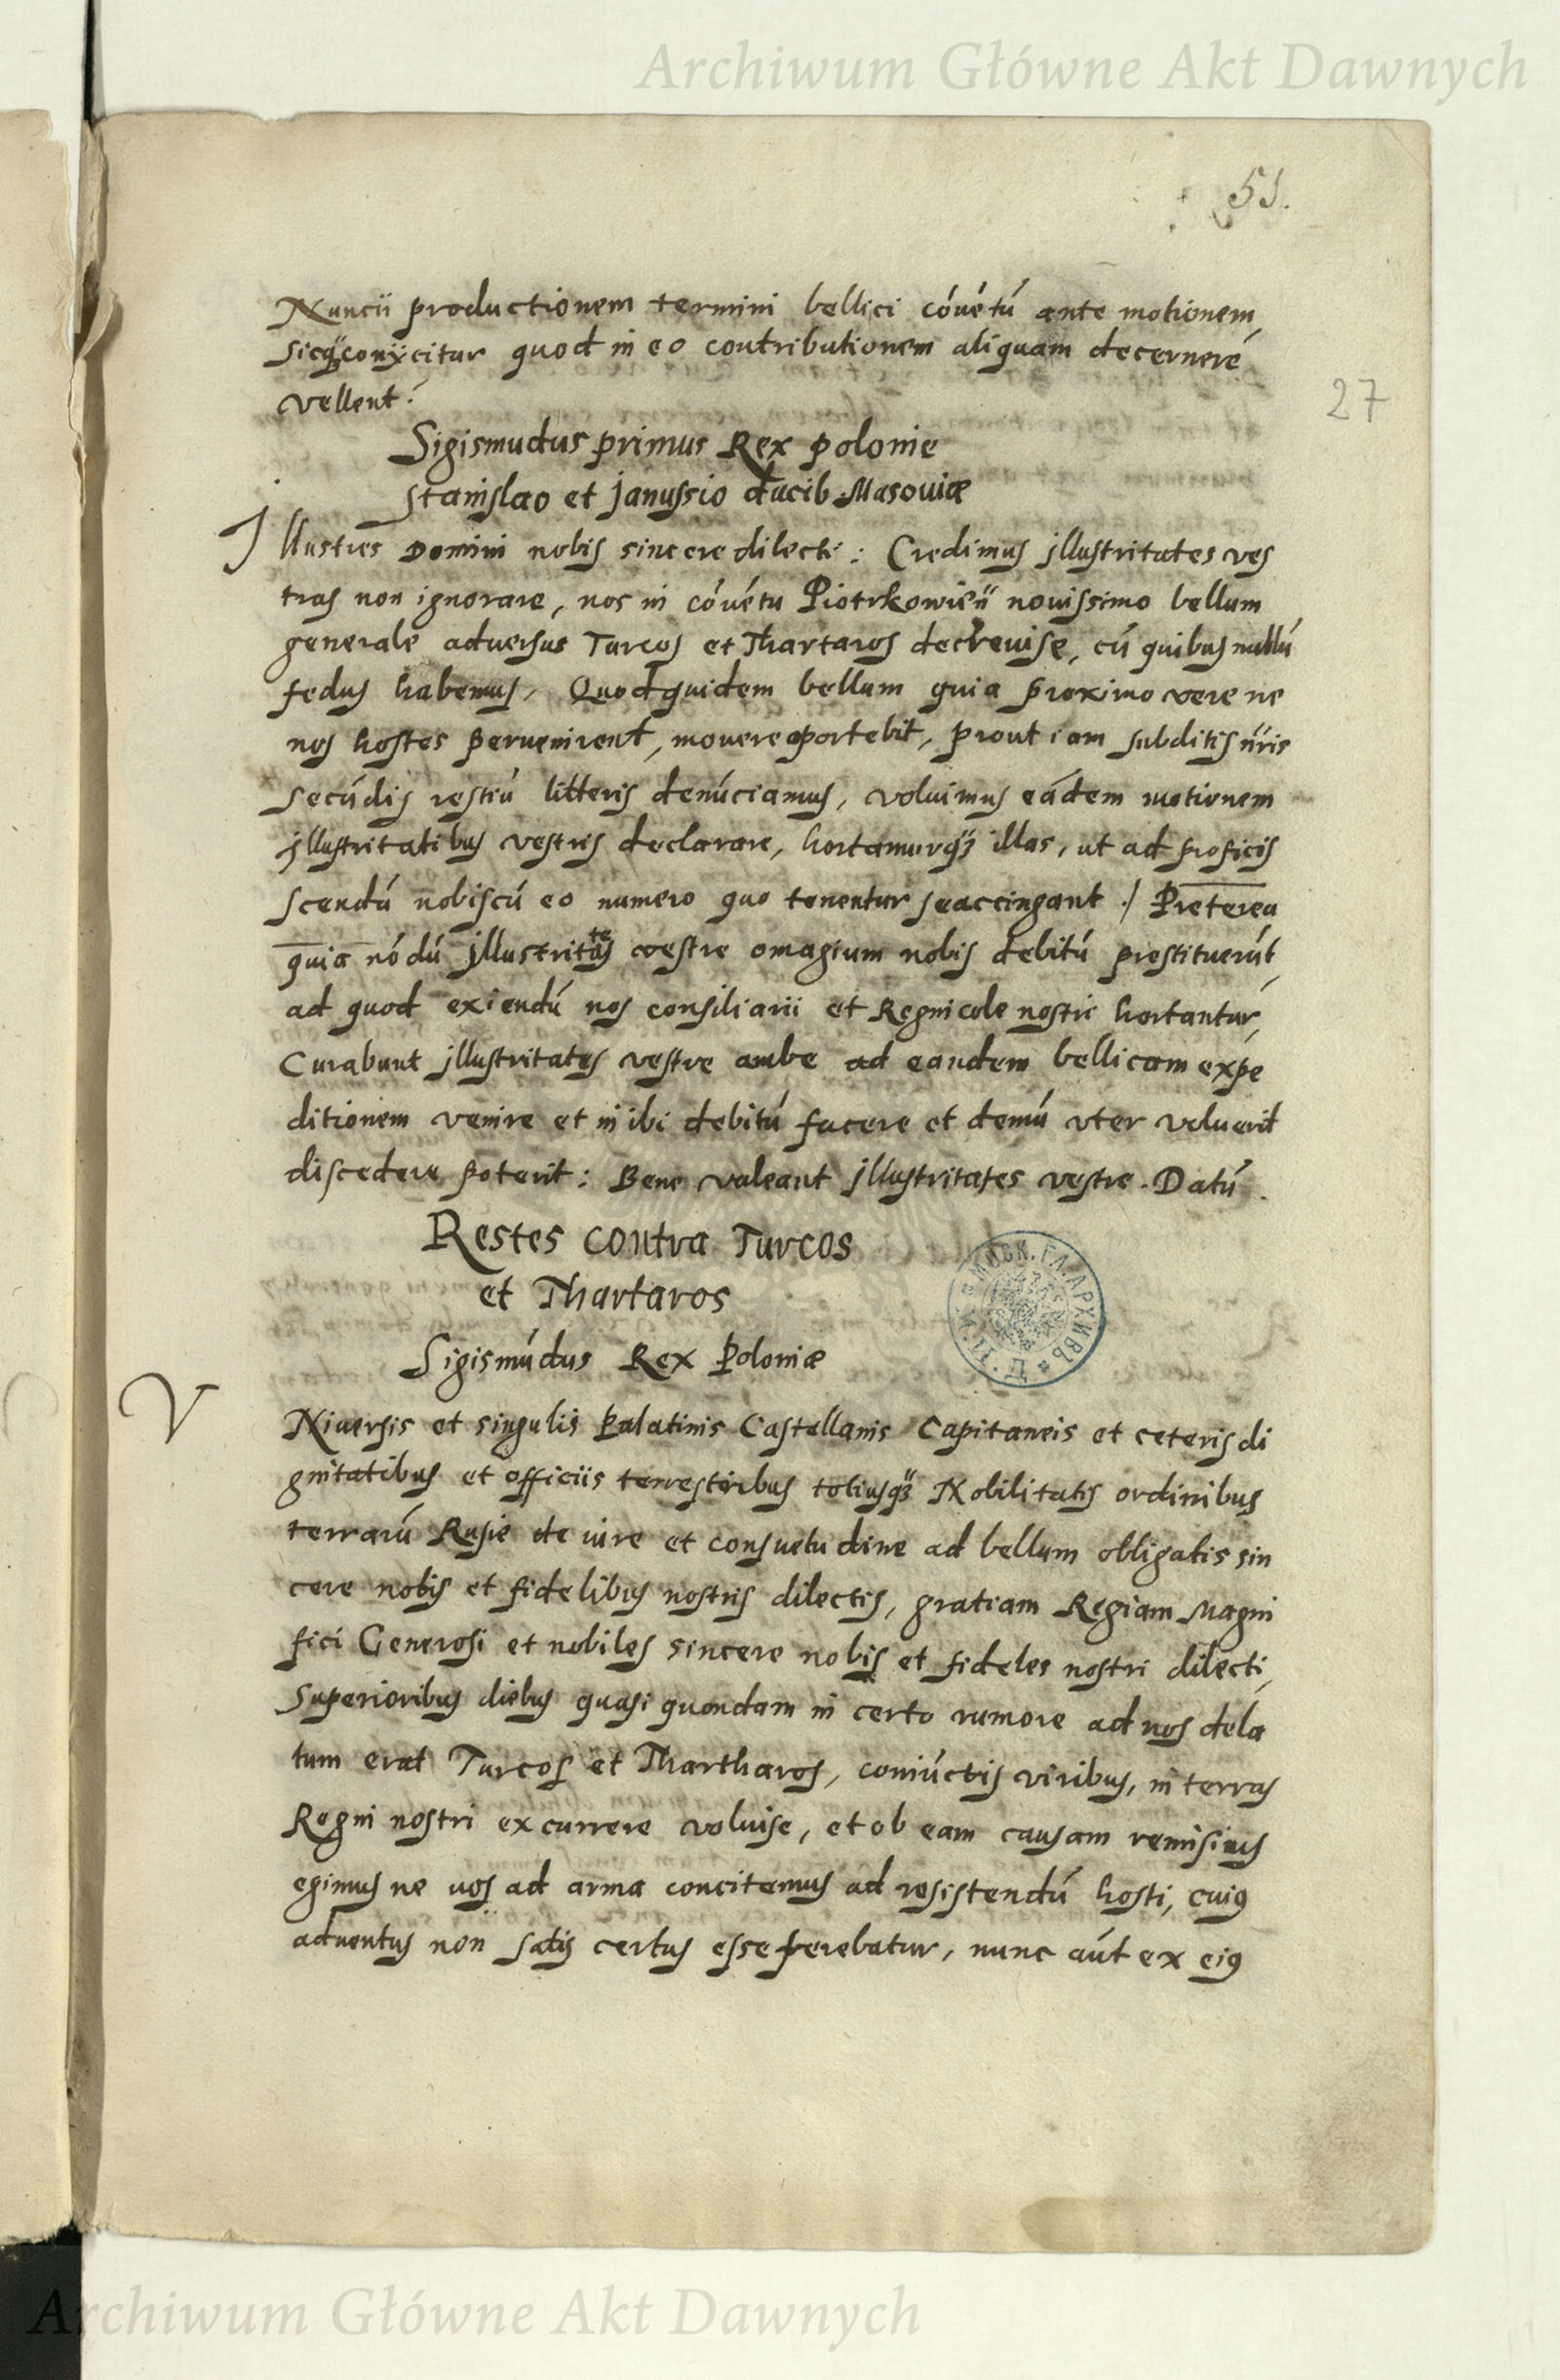 Archiwum Główne Akt Dawnych
51.
Nuncii productionem termini bellici cóuétú ante motionem
sicq́ conÿcitur quod in eo contributionem aliquam decernere
vellent:
27
Sigismudus primus Rex polonie
Stanislao et Janussio ducib. Masouiæ
Jllustres Domini nobis sincere dilecti: Credimus jllustritates ves
tras non ignorare, nos in cóuétu Piotrkowień nouissimo bellum
generale aduersus Turcos et Thartaros decreuise, cú quibus nullú
fedus habemus, Quodquidem bellum quia proximo vere ne
nos hostes peruenirent, mouere oportebit, prout iam subditis nŕis
secúdis restiú litteris denúciamus, voluimus eádem motionem
jllustritatibus vestris declarare, hortamurq́ꝫ illas, ut ad proficis
scendú nobiscú eo numero quo tenentur se accingant ./ Preterea
quia nódú jllustritates vestre omagium nobis debitú prestituerút,
ad quod exiendú nos consiliarii et Regnicole nostri hortantur,
Curabunt jllustritates vestre ambe ad eandem bellicam expe
ditionem venire et inibi debitú facere et demú vter voluerit
discedere poterit: Bene valeant jllustritates vestre. Datú.
Restes contra Turcos
et Thartaros
П. У. МОСК. ГЛ. АРХИВЪ
Sigismúdus Rex Poloniæ
VNiuersis et singulis Palatinis Castellanis Capitaneis et ceteris di
gnitatibus et officiis terrestribus totiusq́ꝫ Nobilitatis ordinibus
terrarú Rusie de iure et consuetudine ad bellum obligatis sin
cere nobis et fidelibus nostris dilectis, gratiam Regiam Magni
fici Generosi et nobiles sincere nobis et fideles nostri dilecti,
Superioribus diebus quasi quondam in certo rumore ad nos dela
tum erat Turcos et Thartharos, coniúctis viribus, in terras
Regni nostri excurrere voluise, et ob eam causam remisius
egimus ne uos ad arma concitemus ad resistendú hosti, cuiꝰ
aduentus non satis certus esse ferebatur, nunc aút ex eiꝰ
Archiwum Główne Akt Dawnych